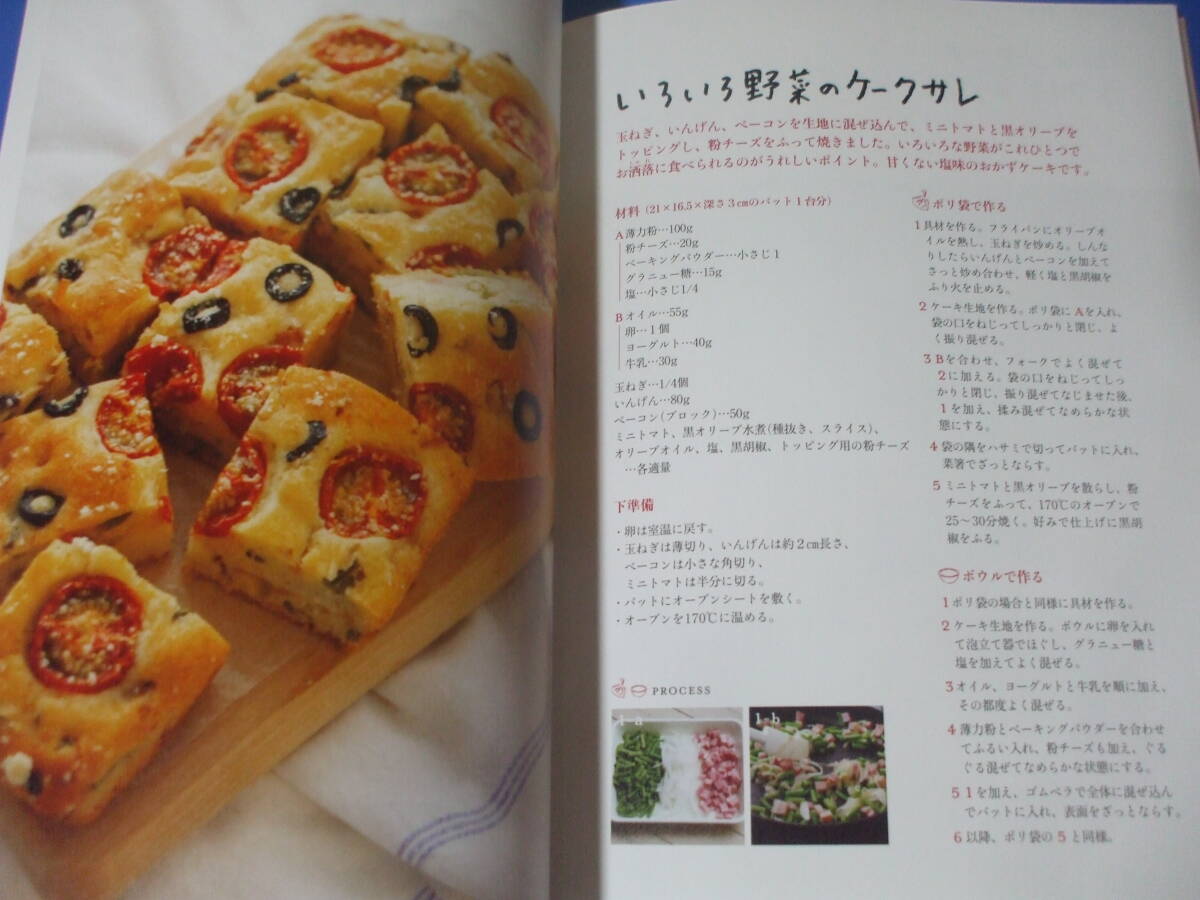 いろいろ野菜のケークサレ
玉ねぎ、いんげん、ベーコンを生地に混ぜ込んで、ミニトマトと黒オリーブを
トッピングし、粉チーズをふって焼きました。いろいろな野菜がこれひとつで
お洒落に食べられるのがうれしいポイント。甘くない塩味のおかずケーキです。
材料（21×16.5×深さ3㎝のバット1台分）
A 薄力粉…100g
粉チーズ…20g
ベーキングパウダー…小さじ1
グラニュー糖…15g
塩…小さじ1/4
B オイル…55g
卵…1個
ヨーグルト…40g
牛乳…30g
玉ねぎ…1/4個
いんげん…80g
ベーコン(ブロック)…50g
ミニトマト、黒オリーブ水煮(種抜き、スライス)、
オリーブオイル、塩、黒胡椒、トッピング用の粉チーズ
…各適量
下準備
・卵は室温に戻す。
・玉ねぎは薄切り、いんげんは約2㎝長さ、
ベーコンは小さな角切り、
ミニトマトは半分に切る。
・バットにオーブンシートを敷く。
・オーブンを170℃に温める。
PROCESS
1-a
1-b
ポリ袋で作る
1 具材を作る。フライパンにオリーブオ
イルを熱し、玉ねぎを炒める。しんな
りしたらいんげんとベーコンを加えて
さっと炒め合わせ、軽く塩と黒胡椒を
ふり火を止める。
2 ケーキ生地を作る。ポリ袋に Aを入れ、
袋の口をねじってしっかりと閉じ、よ
く振り混ぜる。
3 Bを合わせ、フォークでよく混ぜて
2に加える。袋の口をねじってしっ
かりと閉じ、振り混ぜてなじませた後、
1を加え、揉み混ぜてなめらかな状
態にする。
4 袋の隅をハサミで切ってバットに入れ、
菜箸でざっとならす。
5 ミニトマトと黒オリーブを散らし、粉
チーズをふって、170℃のオーブンで
25～30分焼く。好みで仕上げに黒胡
椒をふる。
ボウルで作る
1 ポリ袋の場合と同様に具材を作る。
2 ケーキ生地を作る。ボウルに卵を入れ
て泡立て器でほぐし、グラニュー糖と
塩を加えてよく混ぜる。
3 オイル、ヨーグルトと牛乳を順に加え、
その都度よく混ぜる。
4 薄力粉とベーキングパウダーを合わせ
てふるい入れ、粉チーズも加え、ぐる
ぐる混ぜてなめらかな状態にする。
5 1を加え、ゴムベラで全体に混ぜ込ん
でバットに入れ、表面をざっとならす。
6 以降、ポリ袋の 5 と同様。